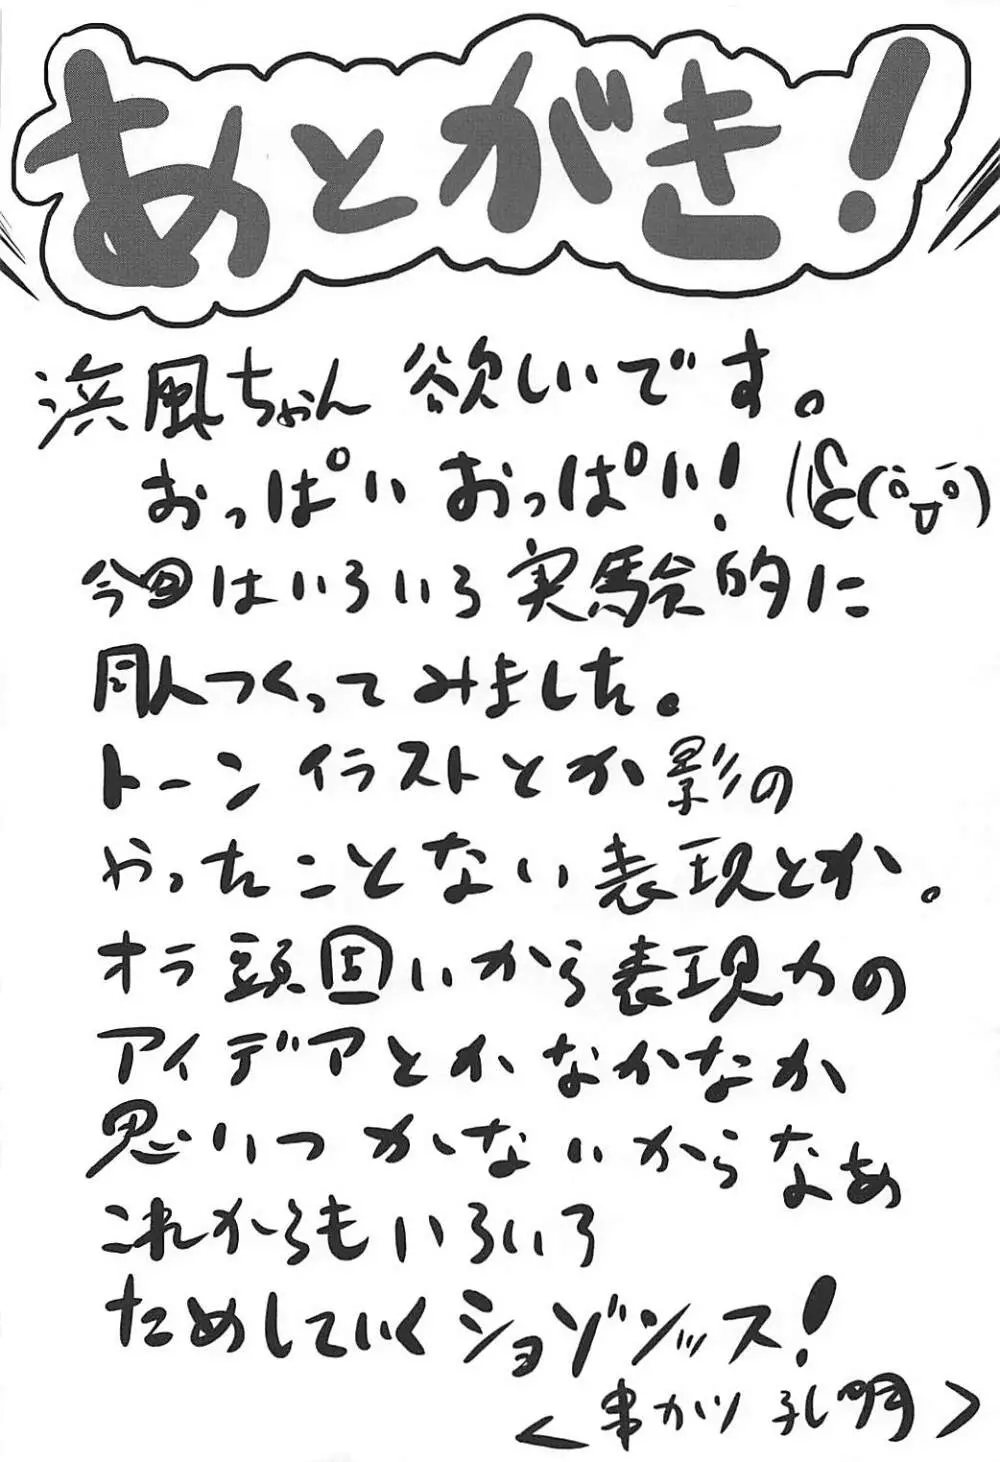 あとがき!
浜風ちゃん 欲しいです。
おっぱい おっぱい!
今回はいろいろ実験的に
同人つくってみました。
トーンイラストとか影の
やったことない表現とか。
オラ頭固いから表現力の
アイデアとかなかなか
思いつかないからなあ
これからもいろいろ
ためしていくショゾンッス!
<串かツ孔明>